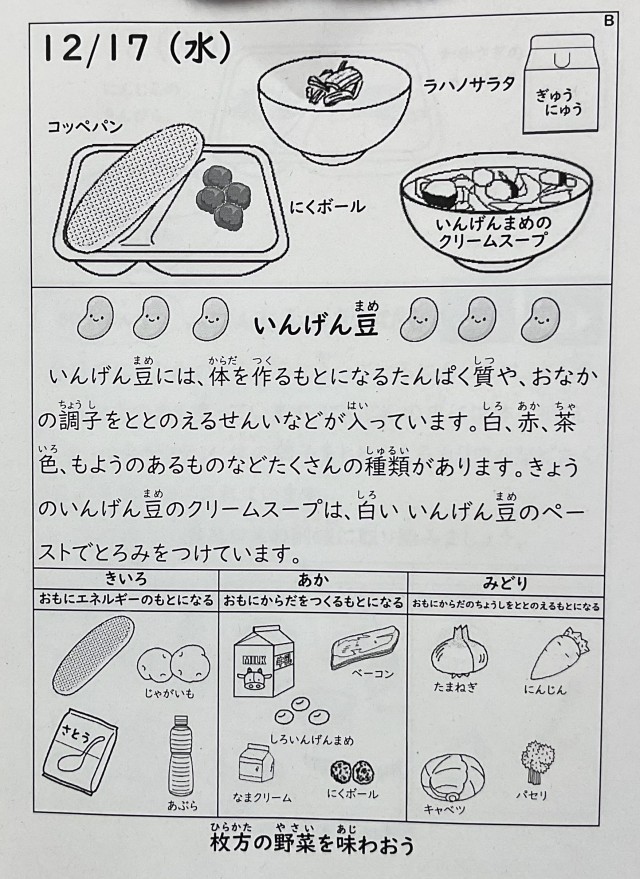 B
12/17(水)
コッペパン
ラハノサラタ
ぎゅう
にゅう
にくボール
いんげんまめの
クリームスープ
いんげん豆
まめ
いんげん豆には、体を作るもとになるたんぱく質や、おなか
まめ からだ つく しつ
の調子をととのえるせんいなどが入っています。白、赤、茶
ちょうし はい しろ あか ちゃ
色、もようのあるものなどたくさんの種類があります。きょう
いろ しゅるい
のいんげん豆のクリームスープは、白い いんげん豆のペー
まめ しろ まめ
ストでとろみをつけています。
きいろ
おもにエネルギーのもとになる
じゃがいも
さとう
あぶら
あか
おもにからだをつくるもとになる
MILK
牛乳
ベーコン
しろいんげんまめ
なまクリーム
にくボール
みどり
おもにからだのちょうしをととのえるもとになる
たまねぎ
にんじん
キャベツ
パセリ
枚方の野菜を味わおう
ひらかた やさい あじ